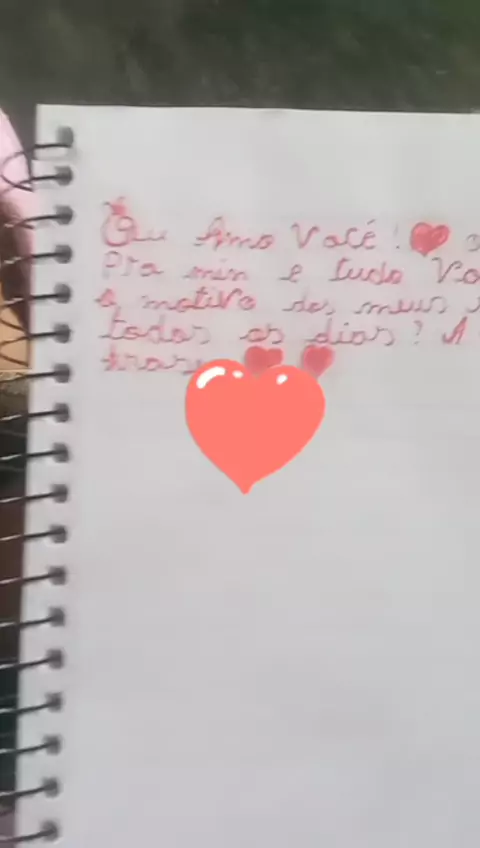 Eu Amo Você!
Pra min e tudo Vo
o motivo dos meus
todos os dias? A